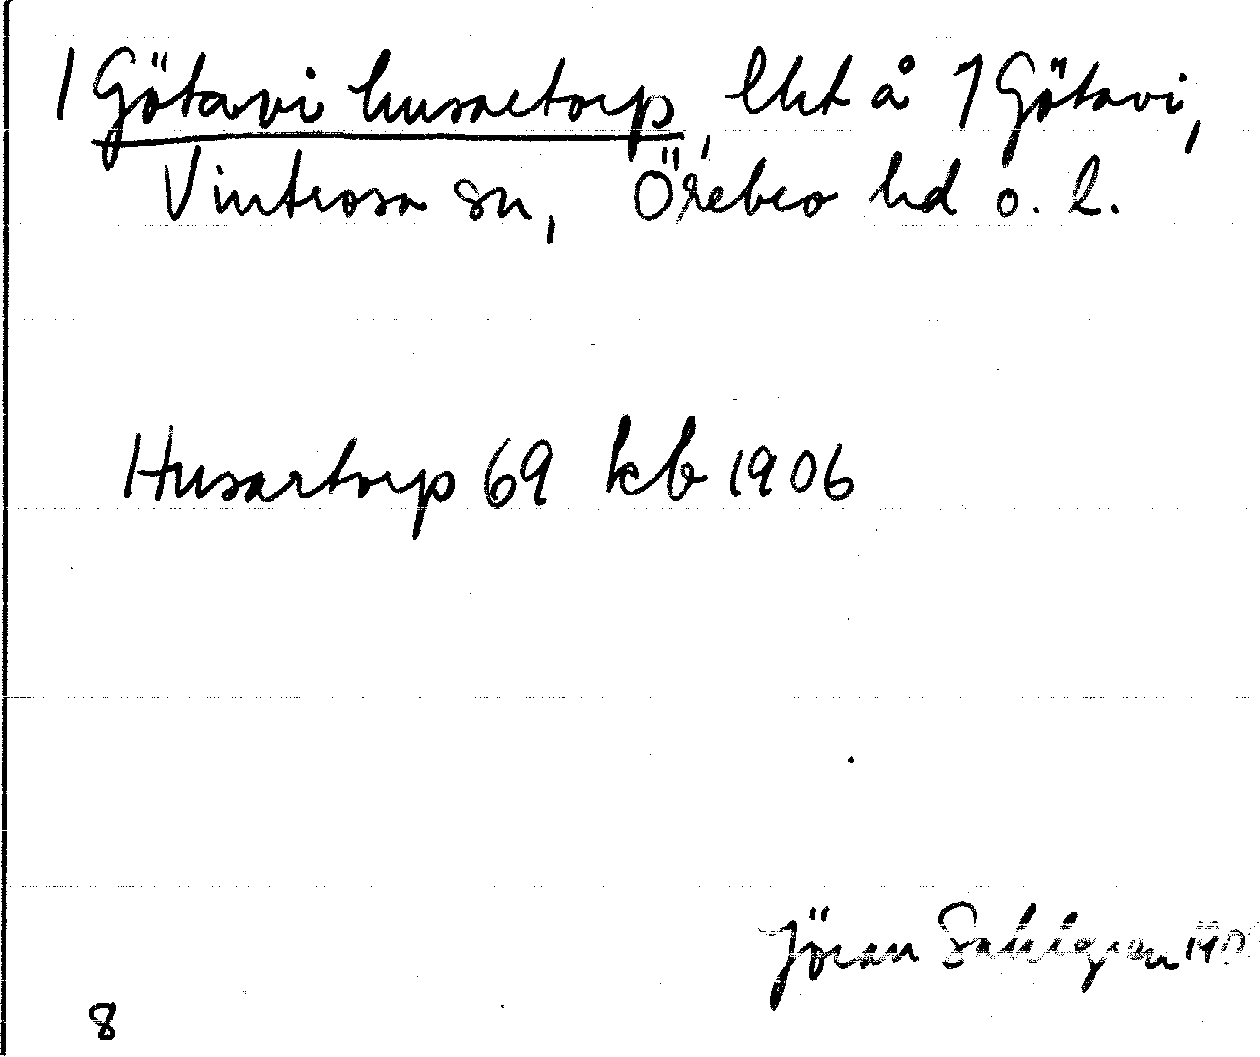 1 Götavi husartorp, lht å 1 Götavi,
Vintrosa sn, Örebro hd o. l.
Husartorp 69 kb 1906
Jöran Sahlgren
8